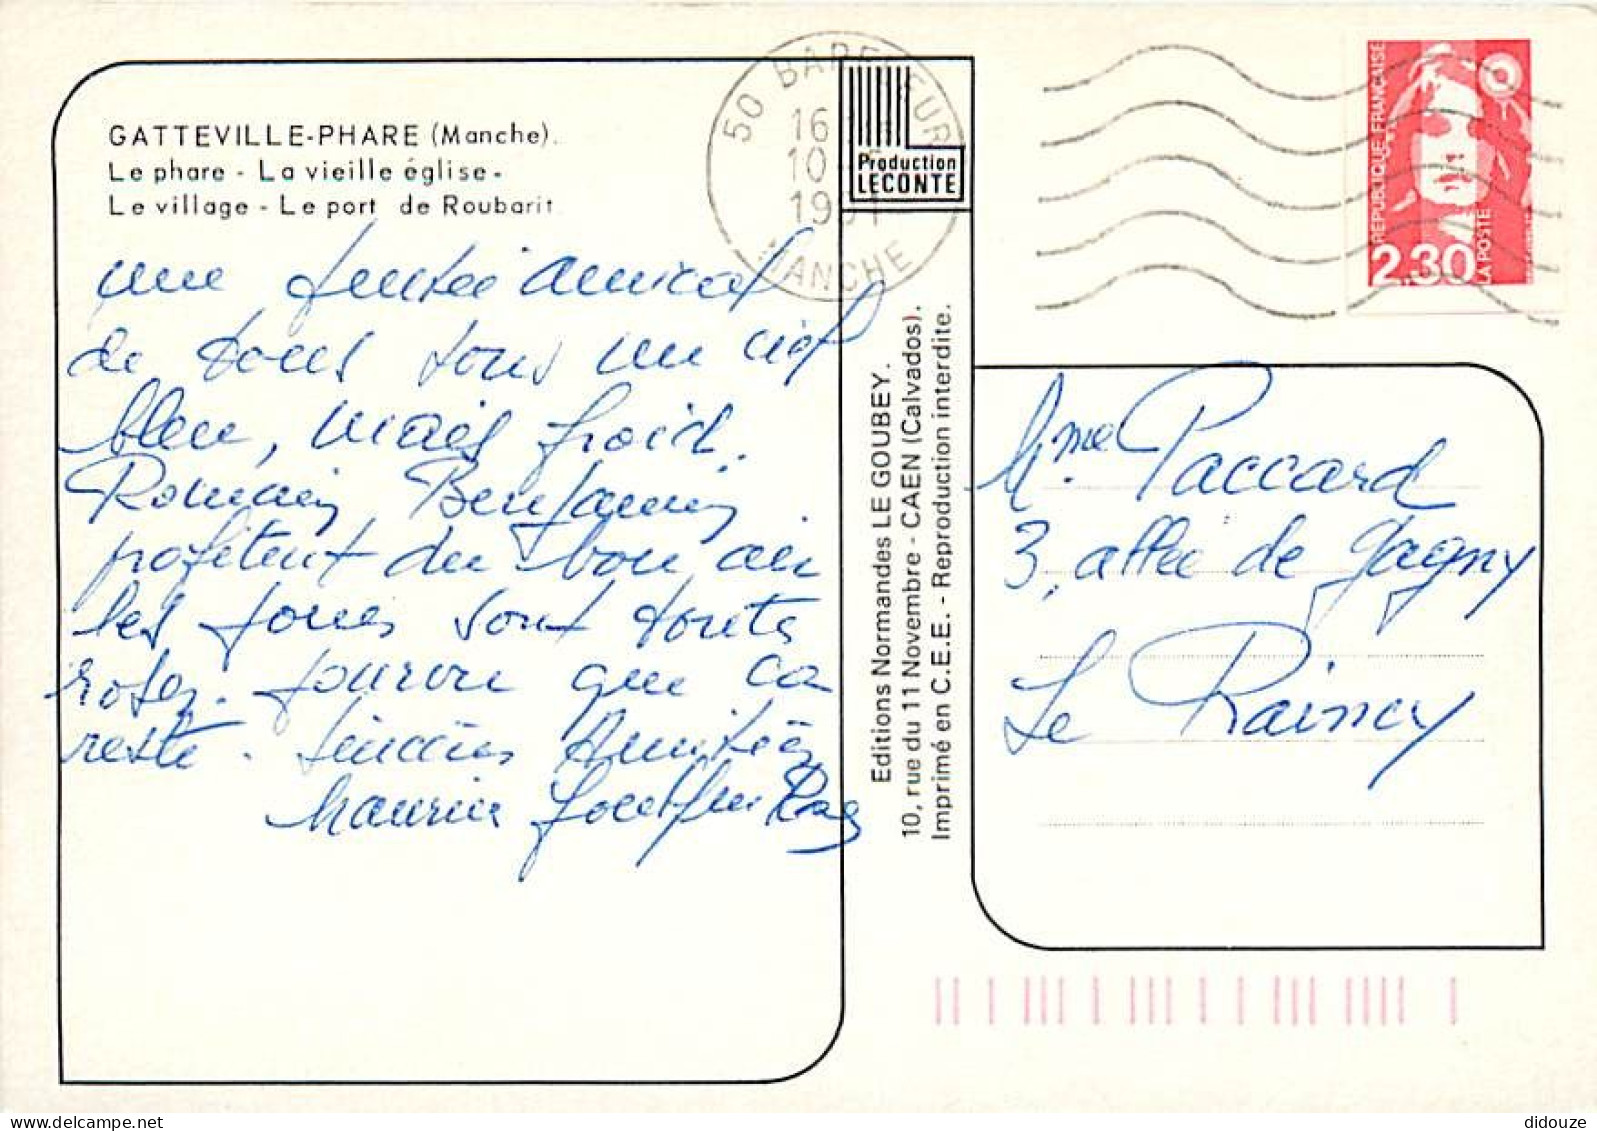 GATTEVILLE-PHARE (Manche).
Le phare - La vieille église -
Le village - Le port de Roubarit
une pensée amical
de tous sous un ciel
bleu, mais froid.
Romain, Benjamin,
profitent du bon air
les joues sont toutes
roses. pourvu que ca
reste. sincères Amitiés
Maurice
50 BARFLEUR
16
10
1991
MANCHE
Production
LECONTE
Editions Normandes LE GOUBEY.
10, rue du 11 Novembre - CAEN (Calvados).
Imprimé en C.E.E. - Reproduction interdite.
REPUBLIQUE FRANÇAISE
2,30
LA POSTE
Mme Paccard
3, allée de Gagny
Le Raincy
didouze